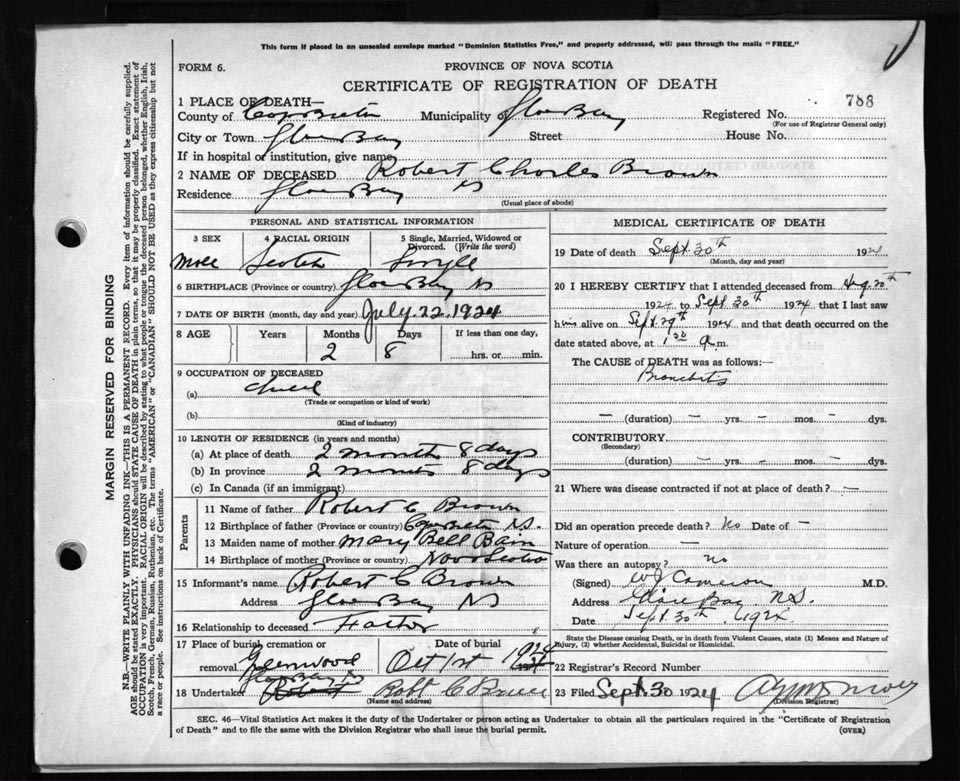 This form if placed in an unsealed envelope marked "Dominion Statistics Free," and properly addressed, will pass through the mails "FREE."
FORM 6.
PROVINCE OF NOVA SCOTIA
CERTIFICATE OF REGISTRATION OF DEATH
MARGIN RESERVED FOR BINDING
N.B.—WRITE PLAINLY WITH UNFADING INK—THIS IS A PERMANENT RECORD. Every item of information should be carefully supplied.
AGE should be stated EXACTLY. PHYSICIANS should STATE CAUSE OF DEATH in plain terms, so that it may be properly classified. Exact statement of
OCCUPATION is very important. RACIAL ORIGIN will be described by stating to what people or tongue the deceased person belonged, whether English, Irish,
Scotch, French, German, Russian, Ruthenian, etc. The terms "AMERICAN" or "CANADIAN" SHOULD NOT BE USED as they express citizenship but not
a race or people. See instructions on back of Certificate.
1 PLACE OF DEATH—
788
County of Cape Breton Municipality of Glace Bay Registered No.
(For use of Registrar General only)
City or Town Glace Bay Street House No.
If in hospital or institution, give name
2 NAME OF DECEASED Robert Charles Brown
Residence Glace Bay NS
(Usual place of abode)
PERSONAL AND STATISTICAL INFORMATION
3 SEX 4 RACIAL ORIGIN 5 Single, Married, Widowed or Divorced. (Write the word)
Male Scotch Single
6 BIRTHPLACE (Province or country) Glace Bay NS
7 DATE OF BIRTH (month, day and year) July. 22, 1924
8 AGE Years Months Days If less than one day,
2 8 hrs. or min.
9 OCCUPATION OF DECEASED
(a) Child
(Trade or occupation or kind of work)
(b)
(Kind of industry)
10 LENGTH OF RESIDENCE (in years and months)
(a) At place of death 2 months 8 days
(b) In province 2 months 8 days
(c) In Canada (if an immigrant)
Parents
11 Name of father Robert C Brown
12 Birthplace of father (Province or country) Cape Breton NS.
13 Maiden name of mother Mary Bell Bain
14 Birthplace of mother (Province or country) Nova Scotia
15 Informant's name Robert C Brown
Address Glace Bay NS
16 Relationship to deceased Father
17 Place of burial, cremation or removal Date of burial
Greenwood
Glace Bay NS
Oct 1st 1924
18 Undertaker Robert Robt C Bruce
(Name and address)
MEDICAL CERTIFICATE OF DEATH
19 Date of death Sept. 30th 1924
(Month, day and year)
20 I HEREBY CERTIFY that I attended deceased from Aug. 20th
1924 to Sept 30th 1924 that I last saw
him alive on Sept. 29th 1924 and that death occurred on the
date stated above, at 1 30 a.m.
The CAUSE of DEATH was as follows:—
Bronchitis
— (duration) — yrs. — mos. — dys.
CONTRIBUTORY
(Secondary)
— (duration) — yrs. — mos. — dys.
21 Where was disease contracted if not at place of death? —
Did an operation precede death? No Date of —
Nature of operation —
Was there an autopsy? no
(Signed) WJ Cameron M.D.
Address Glace Bay N.S.
Date Sept 30th 1924
State the Disease causing Death, or in death from Violent Causes, state (1) Means and Nature of Injury, (2) whether Accidental, Suicidal or Homicidal.
22 Registrar's Record Number
23 Filed Sept 30 1924
(Division Registrar)
SEC. 46—Vital Statistics Act makes it the duty of the Undertaker or person acting as Undertaker to obtain all the particulars required in the "Certificate of Registration
of Death" and to file the same with the Division Registrar who shall issue the burial permit.
(OVER)